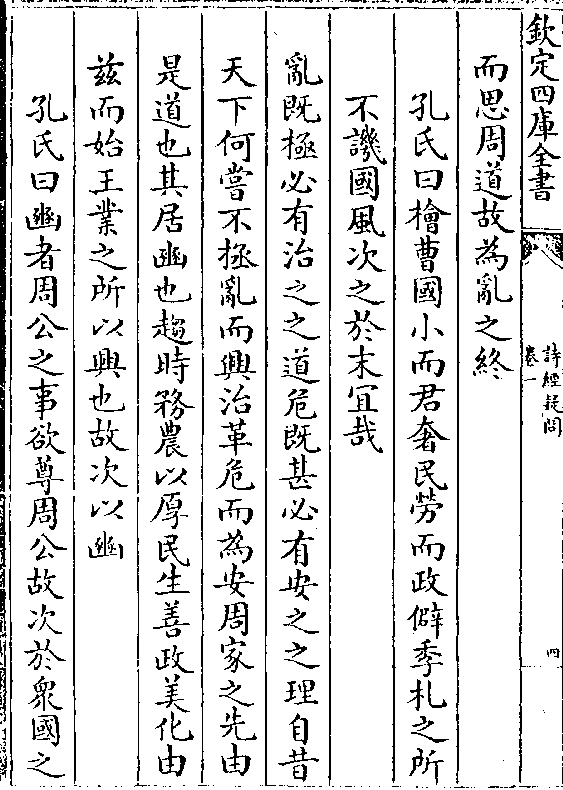 欽定四庫全書
詩經疑問
卷一
四
而思周道故為亂之終
孔氏曰檜曹國小而君奢民勞而政僻季札之所
不譏國風次之於末宜哉
亂既極必有治之之道危既甚必有安之之理自昔
天下何嘗不拯亂而興治革危而為安周家之先由
是道也其居豳也趨時務農以厚民生善政美化由
兹而始王業之所以興也故次以豳
孔氏曰豳者周公之事欲尊周公故次於衆國之